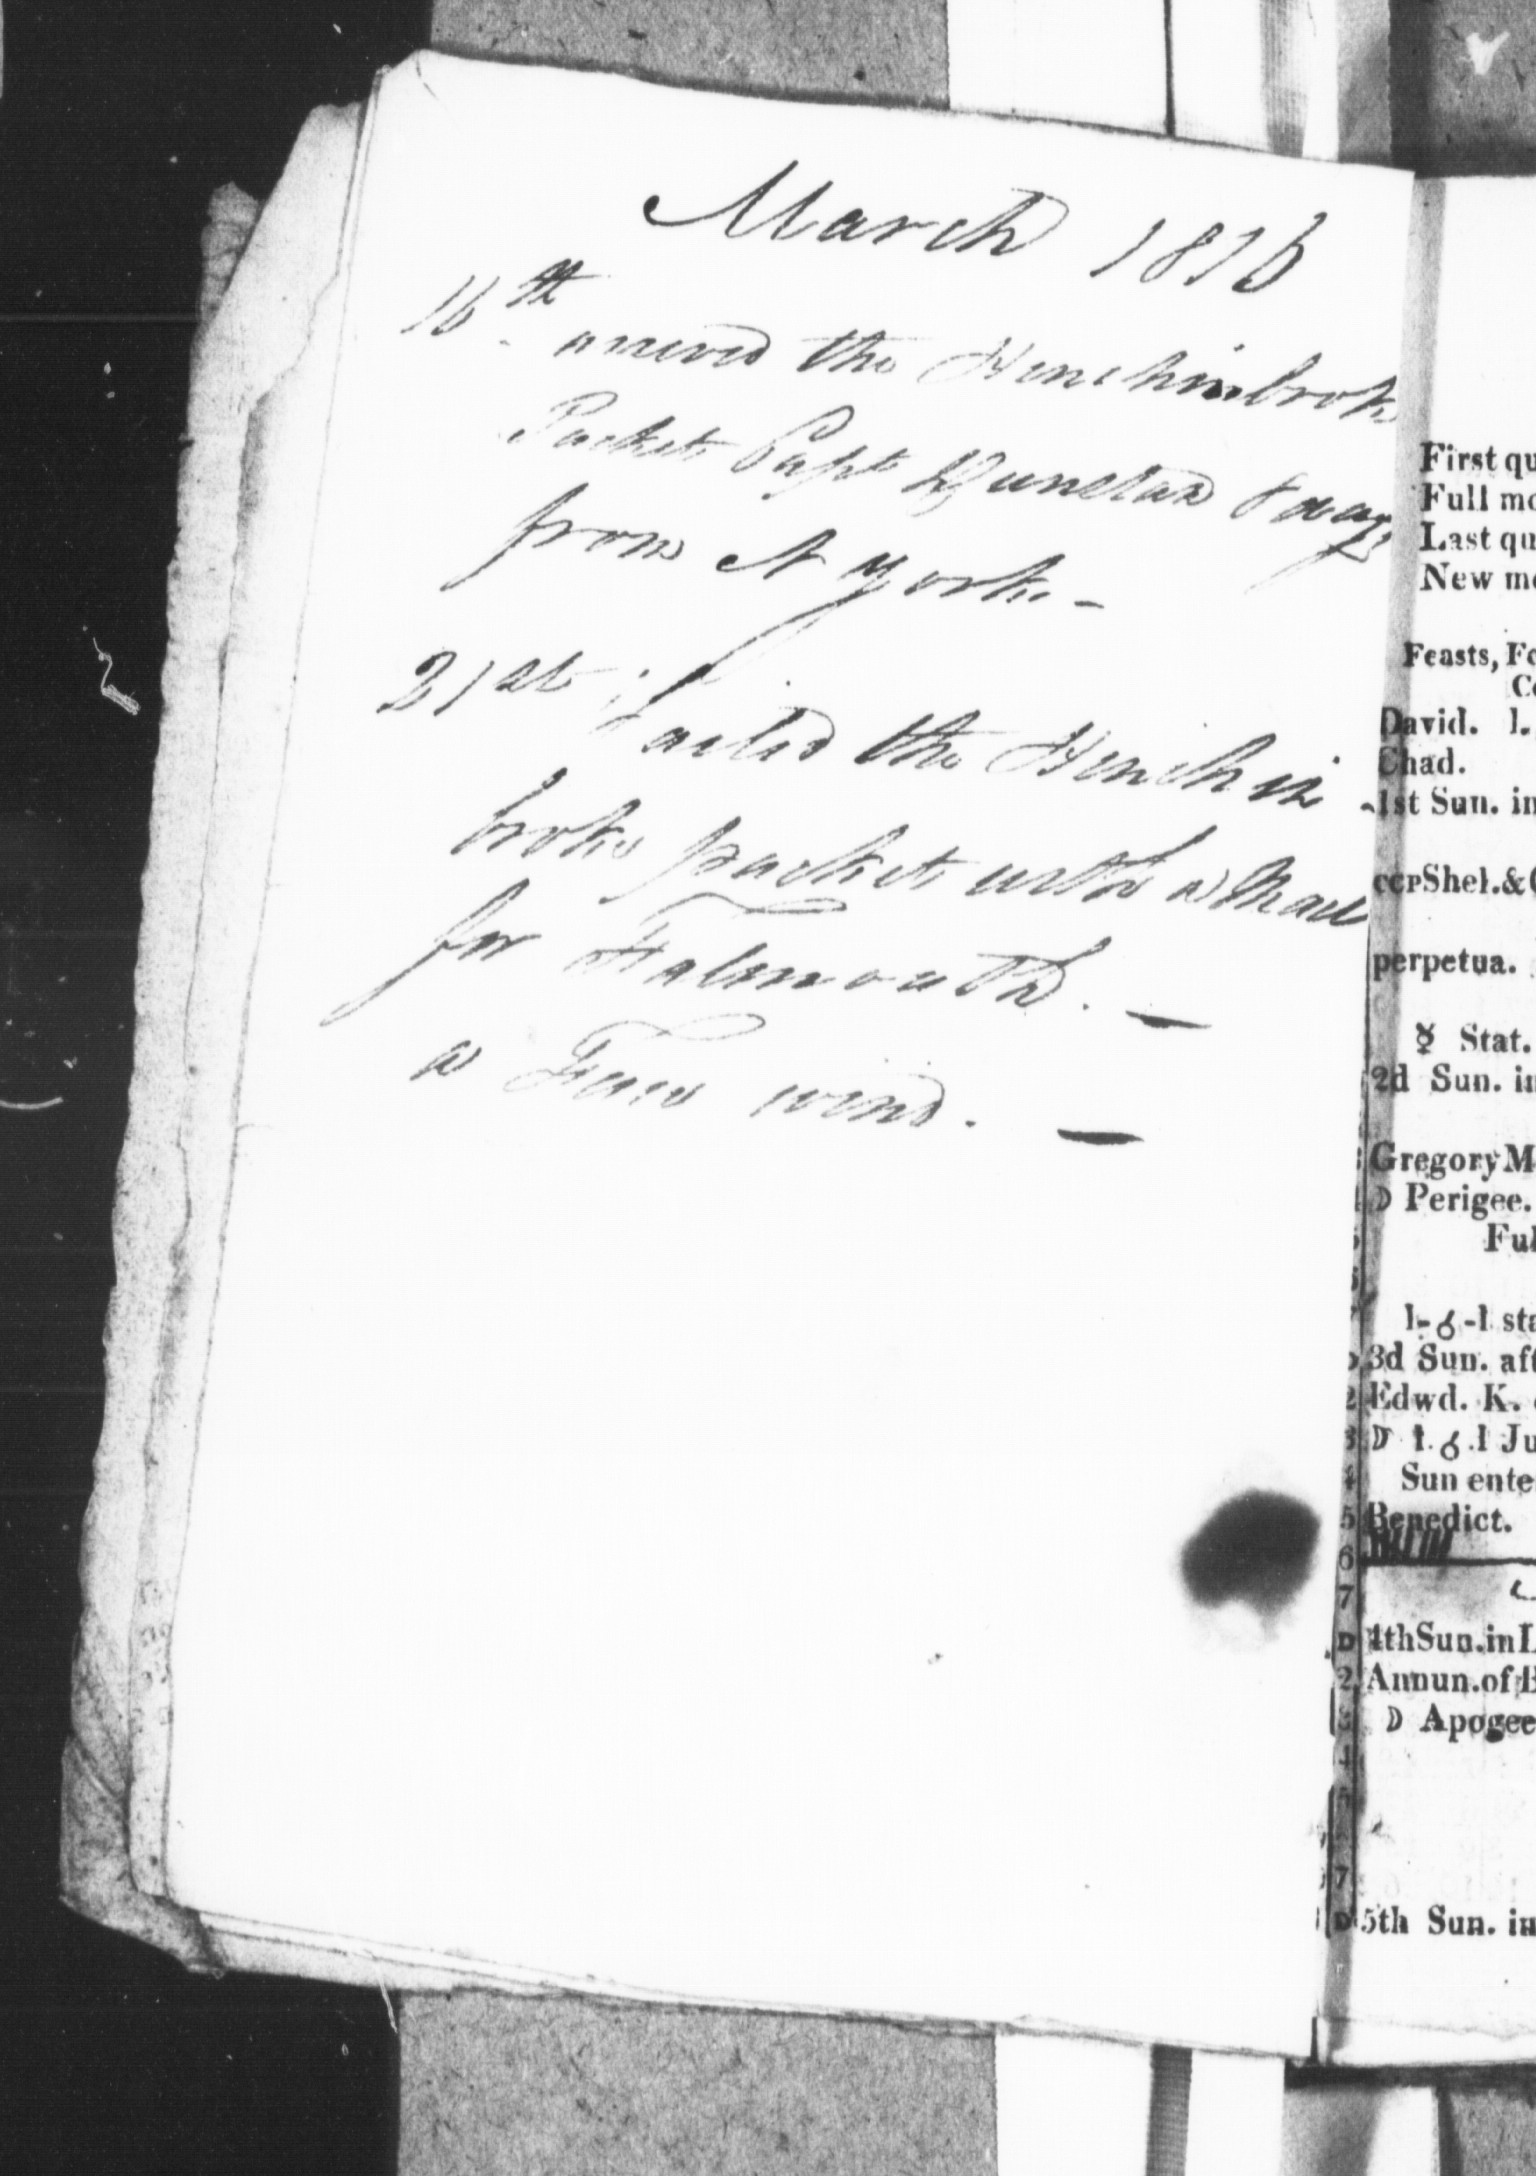 March 1816
16th
arrived the Hinchinbroke
Packet Capt Dunstan 8 days
from N York. -
21st. Sailed the Hinchin
broke packet with a Mail
for Falmouth. —
a Fair wind. —
First qu
Full mo
Last qu
New mo
Feasts, Fe
Co
David. 1.
Chad.
1st Sun. in
Shel.&
perpetua.
☿ Stat.
2d Sun. in
Gregory M
☽ Perigee.
Ful
1-☌-1 sta
3d Sun. aft
2 Edwd. K.
3 ☽ 1.☌.1 Ju
4 Sun ente
5 Benedict.
6
7
D 4th Sun. in L
2 Annun. of B
3 ☽ Apogee
4
5
7
D 5th Sun. in